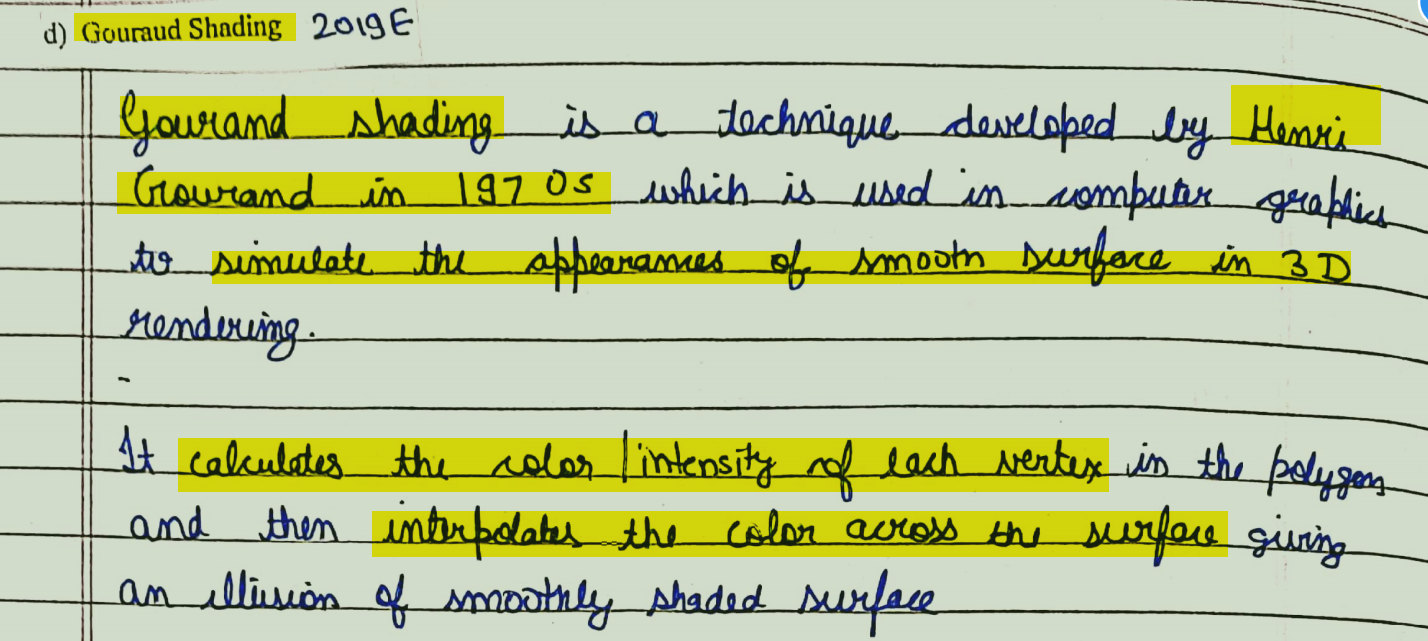 d) Gouraud Shading 2019E
Gourand shading is a technique developed by Henri
Gourand in 1970s which is used in computer graphics
to simulate the appearances of smooth surface in 3D
rendering.
-
It calculates the color/intensity of each vertex in the polygon
and then interpolates the color across the surface giving
an illusion of smoothly shaded surface